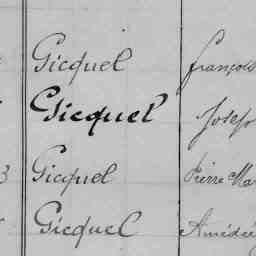 Gicquel François
Gicquel Joseph
3 Gicquel Pierre Mar
Gicquel Amédée